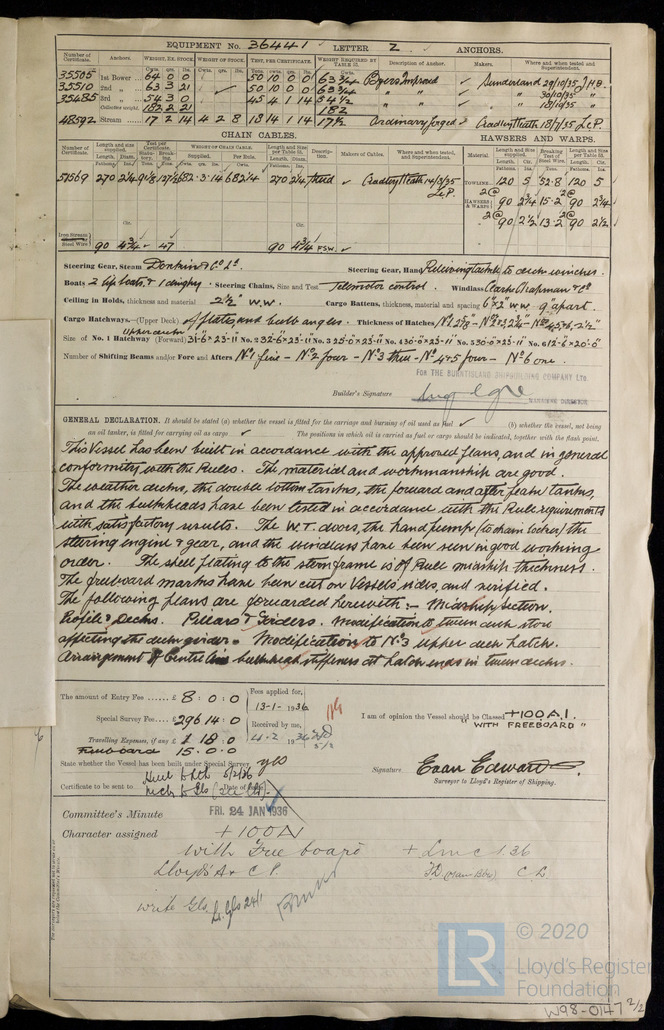 EQUIPMENT No. 36441 LETTER Z ANCHORS.
Number of Certificate. Anchors. WEIGHT, EX. STOCK. WEIGHT OF STOCK. TEST, PER CERTIFICATE. WEIGHT REQUIRED BY TABLE 31. Description of Anchor. Makers. Where and when tested and Superintendent.
35505 1st Bower 64 0 0 50 10 0 0 63 3/4 Byers Improved Sunderland 29/10/35 J.H.B.
35510 2nd " 63 3 21 50 10 0 0 63 3/4 " " " 30/10/35 "
35485 3rd " 54 3 0 45 4 1 14 54 1/2 " " " 18/10/35 "
Collective weight 182 2 21 182
48592 Stream 17 2 14 4 2 8 18 14 1 14 17 1/2 Ordinary forged Cradley Heath 18/7/35 L.C.P.
CHAIN CABLES. HAWSERS AND WARPS.
51569 270 2 1/4 91 1/8 127 1/2 682.3.14 682 1/4 270 2 1/4 Stud Cradley Heath 14/3/35 L.C.P.
TOWLINE 120 5 52.8 120 5
HAWSERS & WARPS 2@ 90 2 3/4 15.2 2@ 90 2 3/4
2@ 90 2 1/2 13.2 2@ 90 2 1/2
Iron Stream or Steel Wire 90 4 3/4 47 90 4 3/4 FSW.
Steering Gear, Steam Donkin & Co Ld. Steering Gear, Hand Relieving tackle to deck winches.
Boats 2 lifeboats & 1 dinghy. Steering Chains, Size and Test Telemotor control. Windlass Clarke Chapman & Co
Ceiling in Holds, thickness and material 2 1/2" W.W. Cargo Battens, thickness, material and spacing 6" x 2" W.W. 9" apart.
Cargo Hatchways.—(Upper Deck) of plates, and bulb angles. Thickness of Hatches No 1 2 5/8 - No 2 & 3 2 3/4 - No 4 5 & 6 - 2 1/2"
Upper deck
Size of No. 1 Hatchway (Forward) 31-6" x 23-11 No. 2 32-6" x 23-11 No. 3 25-0" x 23-11 No. 4 30-0" x 23-11 No. 5 30-0" x 23-11 No. 6 12-6" x 20-0"
Number of Shifting Beams and/or Fore and Afters No 1 five - No 2 four - No 3 three - No 4 & 5 four - No 6 one.
FOR THE BURNTISLAND SHIPBUILDING COMPANY LTD.
Builder's Signature MANAGING DIRECTOR
GENERAL DECLARATION. It should be stated (a) whether the vessel is fitted for the carriage and burning of oil used as fuel (b) whether the vessel, not being
an oil tanker, is fitted for carrying oil as cargo The positions in which oil is carried as fuel or cargo should be indicated, together with the flash point.
This Vessel has been built in accordance with the approved plans, and in general
conformity with the Rules. The material and workmanship are good.
The weather decks, the double bottom tanks, the forward and after peak tanks,
and the bulkheads have been tested in accordance with the Rule requirements
with satisfactory results. The W.T. doors, the hand pump (to chain locker) the
steering engine & gear, and the windlass have been seen in good working
order. The shell plating to the sternframe is of Rule midship thickness.
The freeboard marks have been cut on Vessels sides, and verified.
The following plans are forwarded herewith:- Midship section.
Profile & Decks. Pillars & Girders. Modification to tween deck store
affecting the deck girder. Modification to No 3 upper deck hatch.
Arrangement of Centre line bulkhead stiffeners at hatch ends in tween decks.
The amount of Entry Fee ...... £ 8 : 0 : 0 Fees applied for,
13-1-1936
Special Survey Fee .... £ 296 14 : 0 Received by me,
Travelling Expenses, if any £ 1 18 : 0 4.2 1936
Freeboard 15.0.0
I am of opinion the Vessel should be Classed +100A.1.
"WITH FREEBOARD"
State whether the Vessel has been built under Special Survey yes
Signature Evan Edwards.
Surveyor to Lloyd's Register of Shipping.
Certificate to be sent to Date of issue
FRI. 24 JAN 1936
Committee's Minute
Character assigned +100A1
with Freeboard + LMC 1 36
Lloyd's A & C P. C.L.
write Gls
© 2020
LR
Lloyd's Register
Foundation
W98-0147 2/2